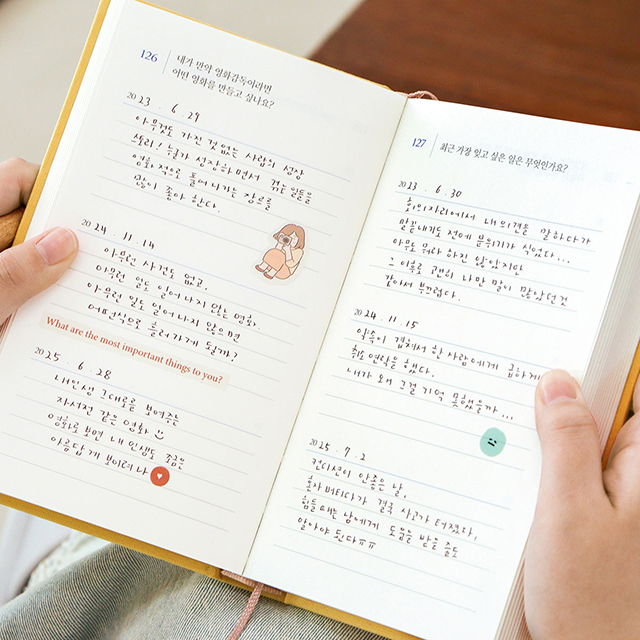 126
내가 만약 영화감독이라면
어떤 영화를 만들고 싶나요?
2023 . 6 . 29
아무것도 가진 것 없는 사람의 성장
스토리! 누군가 성장하면서 겪는 일들을
영화적으로 풀어나가는 장르를
많이 좋아한다.
2024 . 11 . 14
아무런 사건도 없고.
아무런 일도 일어나지 않는 영화.
아무런 일도 일어나지 않으면
어떤식으로 흘러가게 될까?
What are the most important things to you?
2025 . 6 . 28
내인생 그대로를 보여주는
자서전 같은 영화
영화로 보면 내 인생도 조금은
아름답게 보이려나
127
최근 가장 잊고 싶은 일은 무엇인가요?
2023 . 6 . 30
회의자리에서 내 의견을 말하다가
말끝내기도 전에 분위기가 식었다...
아무도 뭐라 하진 않았지만
그 이후로 괜히 나만 말이 많았던 것
같아서 부끄럽다.
2024 . 11 . 15
약속이 겹쳐서 한 사람에게 급하게
취소 연락을 했다.
내가 왜 그걸 기억 못했을까...
2025 . 7 . 2
컨디션이 안좋은 날,
혼자 버티다가 결국 사고가 터졌다,
힘들 때는 남에게 도움을 받을 줄도
알아야 된다ㅠㅠ